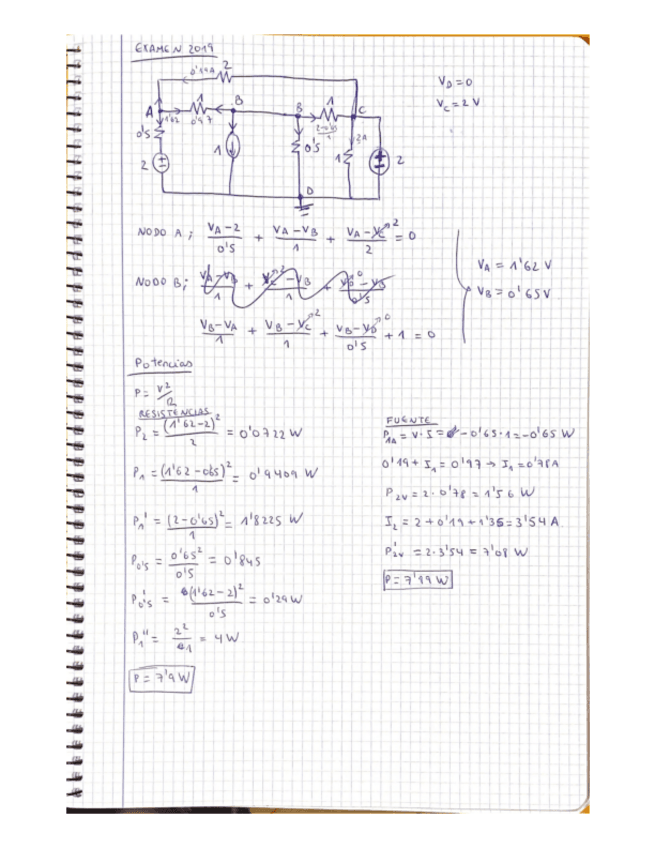 EXAMEN 2019
0'19A 2
V_D = 0
V_C = 2 V
A 1 B B 1 C
1'62 0'97 2-0'65/1 2A
0'5 1 0'5 1 2
2
D
NODO A; (V_A - 2)/0'5 + (V_A - V_B)/1 + (V_A - V_C↗2)/2 = 0
V_A = 1'62 V
NODO B; (V_A - V_B)/1 + (V_C↗2 - V_B)/1 + (V_D↗0 - V_B)/0'5
V_B = 0'65 V
(V_B - V_A)/1 + (V_B - V_C↗2)/1 + (V_B - V_D↗0)/0'5 + 1 = 0
Potencias
P = V²/R
RESISTENCIAS
P_2 = (1'62 - 2)²/2 = 0'0722 W
P_1 = (1'62 - 0'65)²/1 = 0'9409 W
P_1' = (2 - 0'65)²/1 = 1'8225 W
P_0'5 = 0'65²/0'5 = 0'845
P'_0'5 = (1'62 - 2)²/0'5 = 0'29 W
P_1'' = 2²/1 = 4 W
P = 7'9 W
FUENTE
P_1A = V · I = - 0'65 · 1 = - 0'65 W
0'19 + I_1 = 0'97 → I_1 = 0'78 A
P_2V = 2 · 0'78 = 1'56 W
I_2 = 2 + 0'19 + 1'35 = 3'54 A.
P'_2V = 2 · 3'54 = 7'08 W
P = 7'99 W